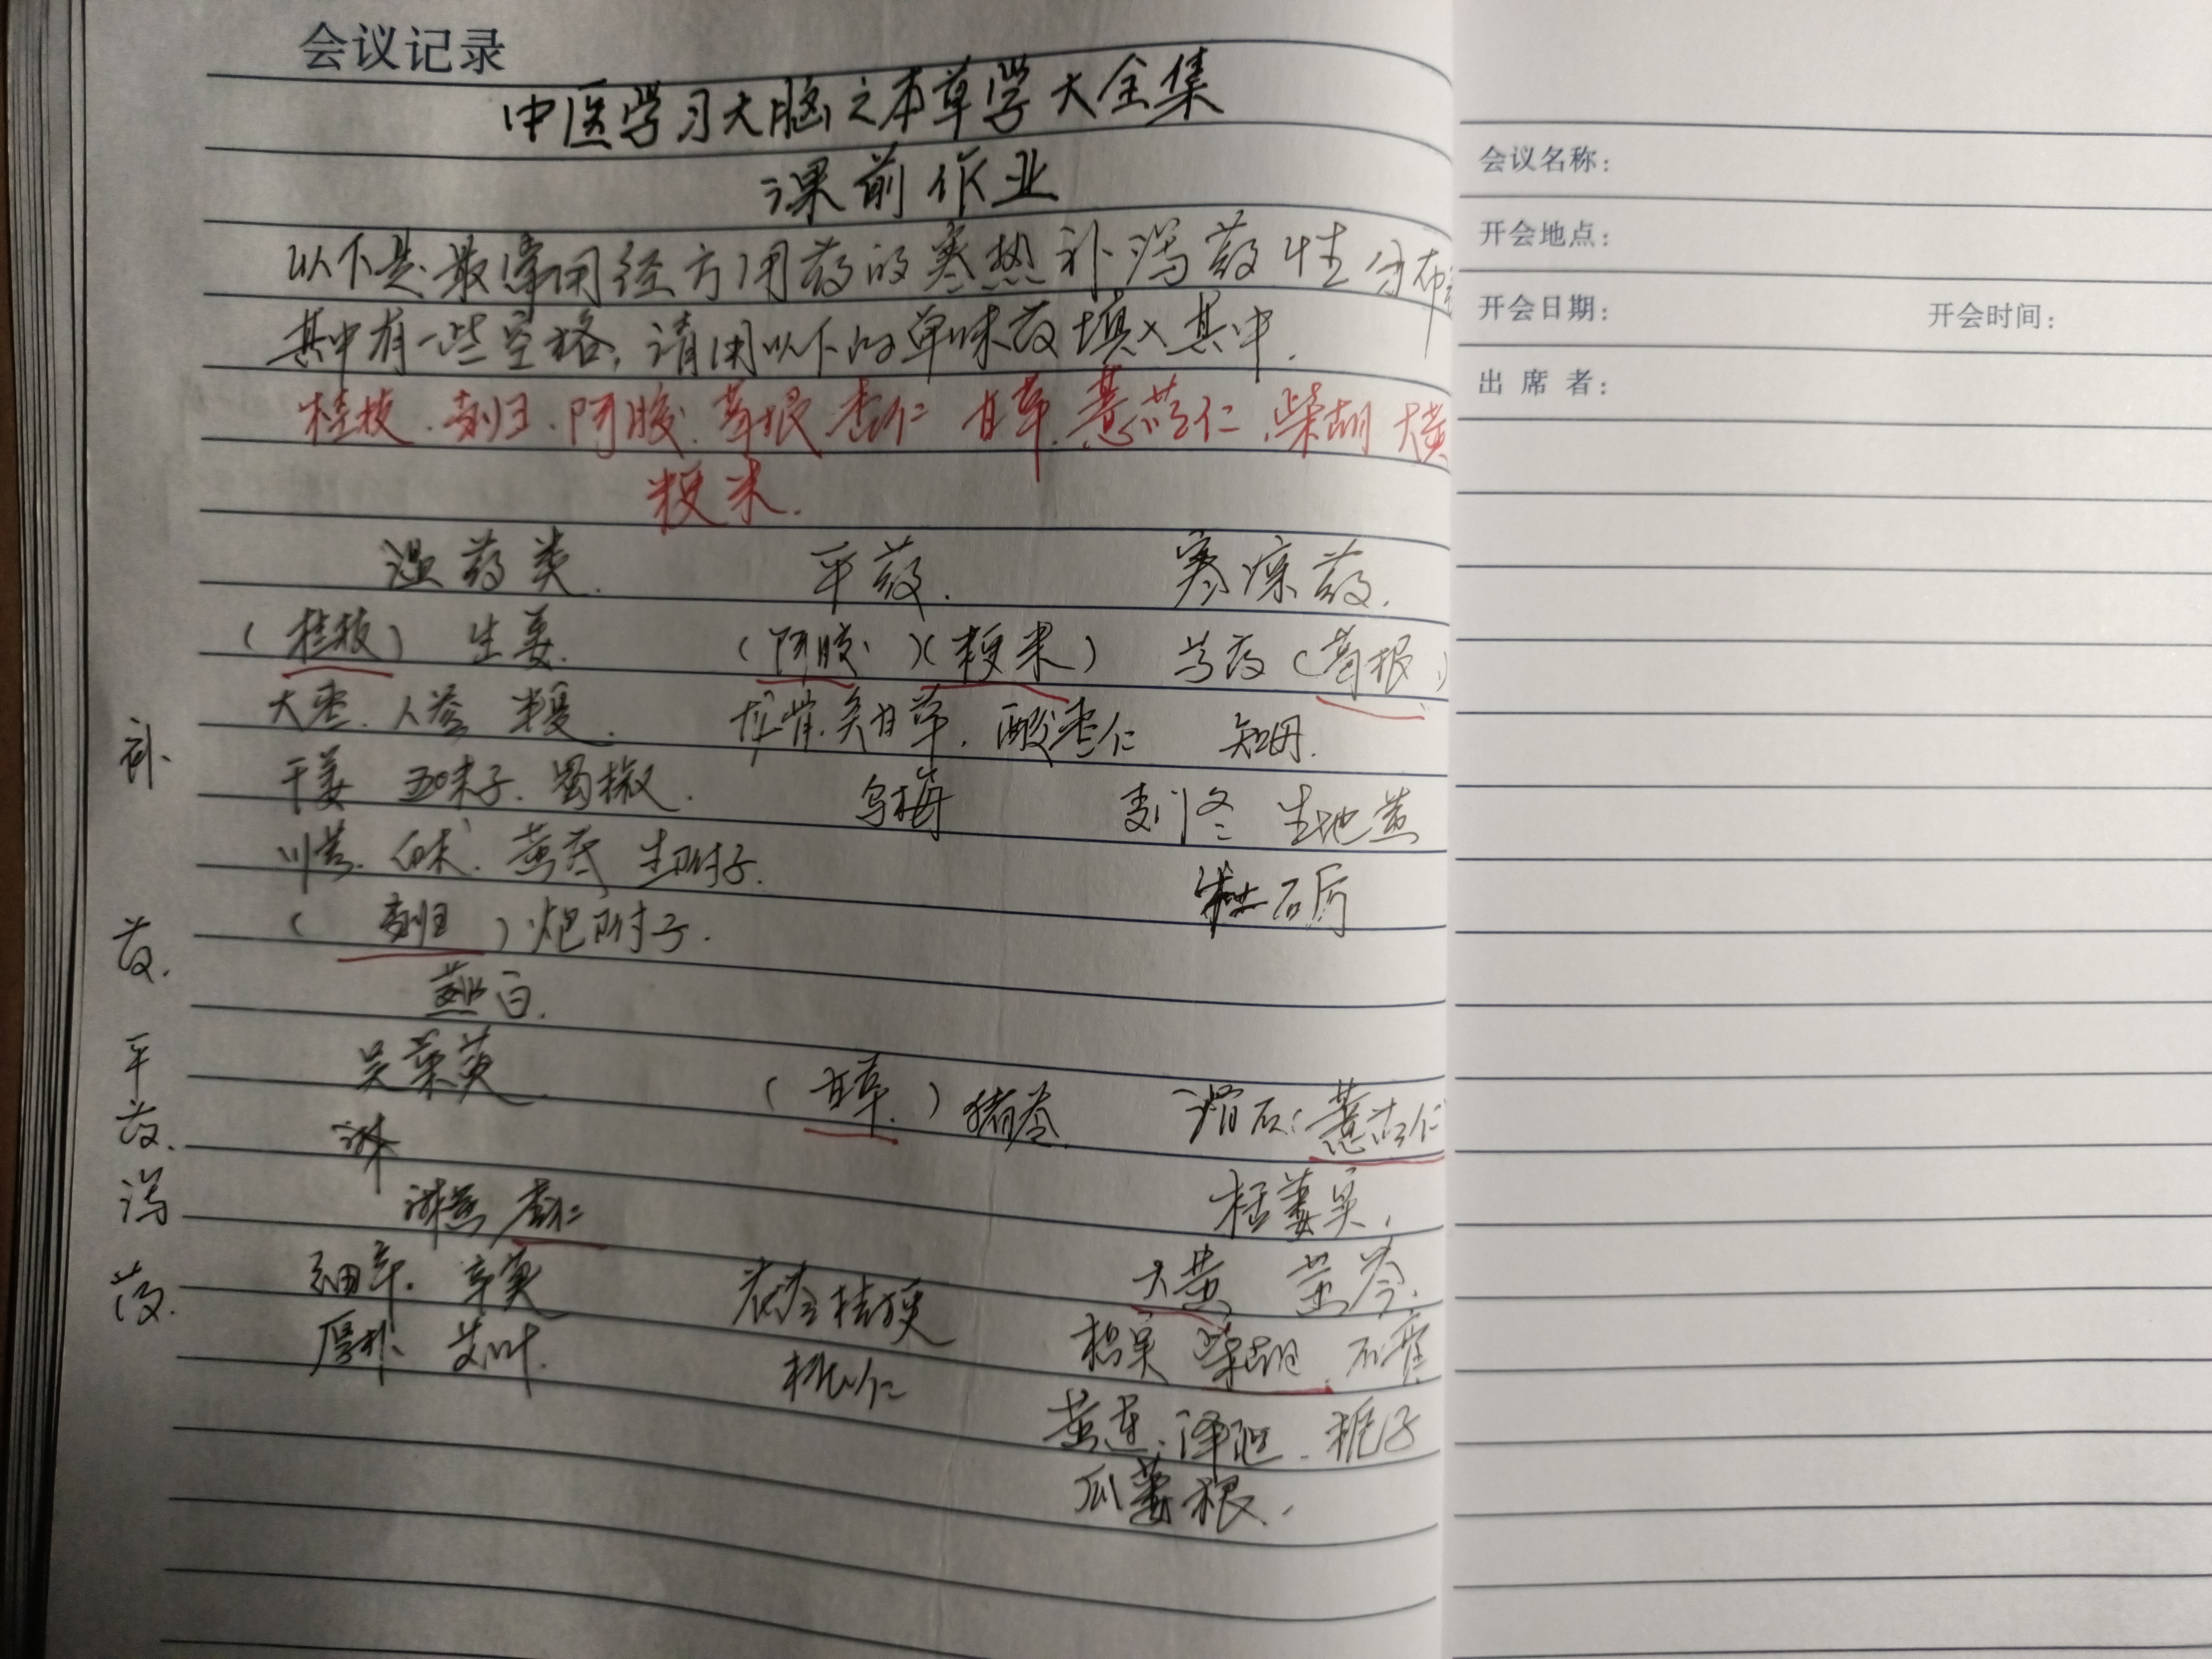 会议记录
中医学习大脑之本草学大全集
课前作业
以下是最常用经方用药的寒热补泻药性分布
其中有一些空格,请用以下的单味药填入其中.
桂枝.当归.阿胶.葛根 杏仁 甘草.薏苡仁.柴胡 大黄
粳米.
温药类. 平药. 寒凉药.
(桂枝) 生姜. (阿胶)(粳米) 芍药(葛根)
大枣.人参 半夏. 龙骨.炙甘草.酸枣仁 知母.
干姜 五味子.蜀椒. 乌梅 麦门冬 生地黄
川芎.白术.黄芪 生附子. 牡石厉
(当归)炮附子.
薤白.
吴茱萸 (甘草.)猪苓 滑石:薏苡仁
麻黄 杏仁 栝蒌实.
细辛. 茯苓 桔梗 大黄 黄芩.
厚朴 艾叶. 桃仁 枳实 柴胡.石膏
黄连.泽泻.栀子
瓜蒌根.
补药.平药.泻药.
会议名称:
开会地点:
开会日期: 开会时间:
出席者: